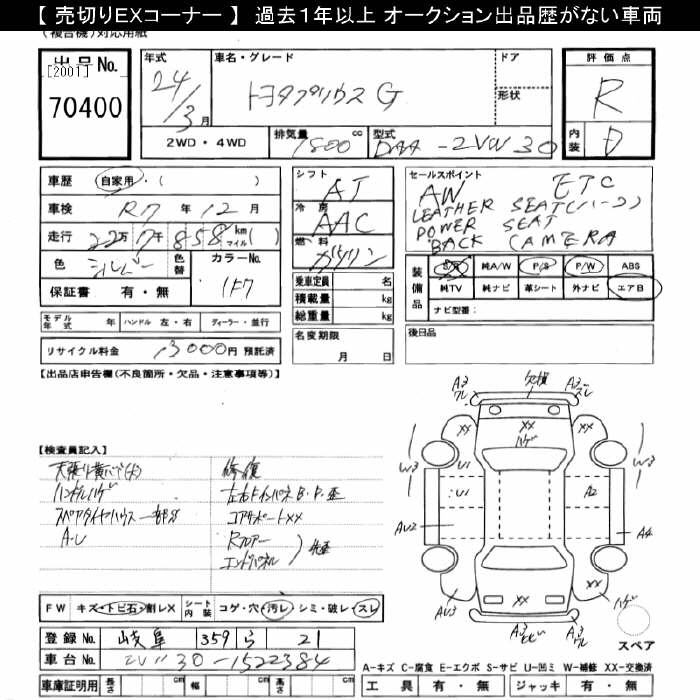 【 売切りEXコーナー 】 過去1年以上 オークション出品歴がない車両
(複合機)対応用紙
出品No.
[2001]
70400
年式
24/3月
車名・グレード
トヨタプリウス G
ドア
形状
2WD・4WD
排気量 1800 cc
型式 DAA-ZVW30
評価点
R
内装 D
車歴 自家用・( )
車検 R7年12月
走行 22万7千858km マイル( )
色 シルバー 色替 カラーNo. 1F7
保証書 有・無
シフト AT
冷房 AAC
燃料 ガソリン
乗車定員 名
積載量 kg
総重量 kg
セールスポイント
AW ETC
LEATHER SEAT(ハーフ)
POWER SEAT
BACK CAMERA
装備品
S/R 純A/W P/S P/W ABS
純TV 純ナビ 革シート 外ナビ エアB
ナビ型番:
モデル年式 年 ハンドル 左・右 ディーラー・並行
リサイクル料金 13000円 預託済
名変期限
月 日
後日品
【出品店申告欄(不良箇所・欠品・注意事項等)】
【検査員記入】
ハンドルハゲ
スペアタイヤハウス一部サビ
A・U
修復
コアサポートXX
Rフロアー
エンドパネル
歪
A3 ワレ 欠損 A3 ズレ
XX XX XX
ハゲ
W3 U1 U1 A2 W3
AU2 A4
AU3 XX ハゲ
A3 A3 ワレ
スペア
FW キズ・トビ石・割レX シート内装 コゲ・穴・汚レ・シミ・破レ・スレ
登録No. 岐阜 359 ら 21
車台No. ZVW30-1522384
車庫証明用 長さ cm 幅 cm 高さ cm
A-キズ C-腐食 E-エクボ S-サビ U-凹ミ W-補修 XX-交換済
工具 有・無 ジャッキ 有・無